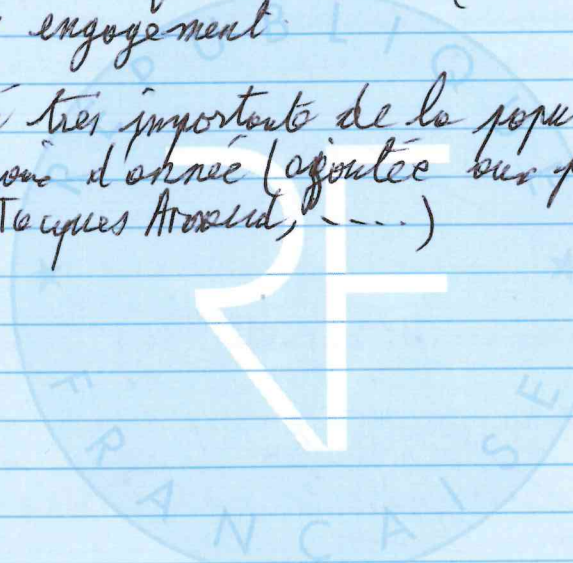 engagement.
très importante de la popu
d'année (ajoutée aux p
Jacques Arnaud, ....)
RF
RÉPUBLIQUE
FRANÇAISE